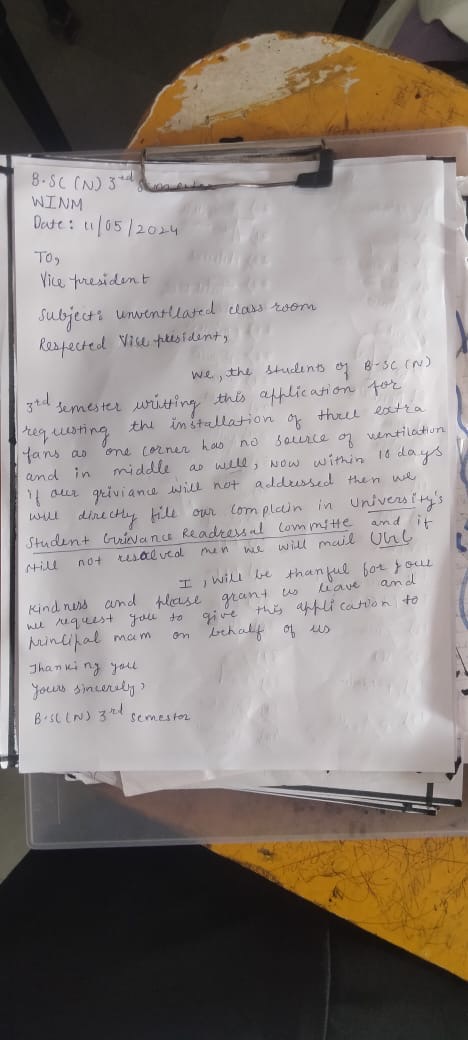 B.SC (N) 3rd Semester
WINM
Date: 11/05/2024
To,
Vice president
Subject: unventllated class room
Respected Vice president,
We, the students of B-SC (N)
3rd semester writting this application for
requsting the installation of three extra
fans as one corner has no source of ventilation
and in middle as well, Now within 10 days
if our griviance will not addressed then we
will directly file our complain in University's
Student Grievance Readressal Committe and if
still not resolved then we will mail
I, will be thanful for your
Kindness and please grant us leave and
we request you to give this application to
principal mam on behalf of us
Thanking you
Yours sincerely,
B.SC(N) 3rd Semestor